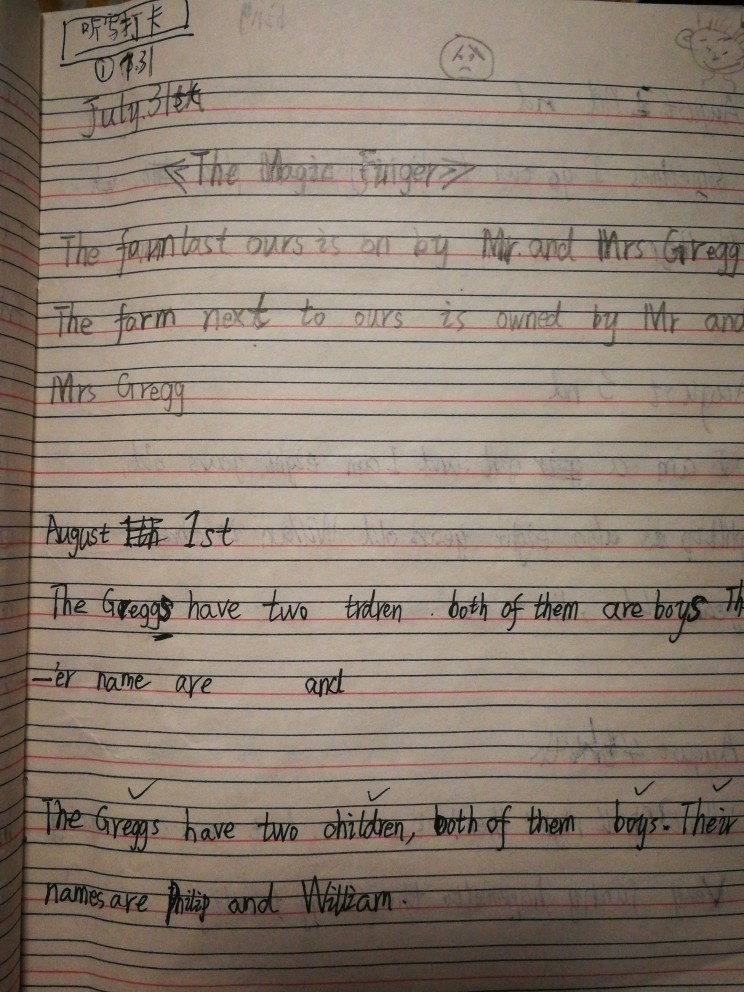 听写打卡
① 7.31
July.31
<<The Magic Finger>>
The farmlast ours is on by Mr. and Mrs Gregg
The farm next to ours is owned by Mr and
Mrs Gregg
August 1st
The Greggs have two trdren . both of them are boys Th
—er name are and
The Greggs have two children, both of them boys. Their
names are Philip and William.